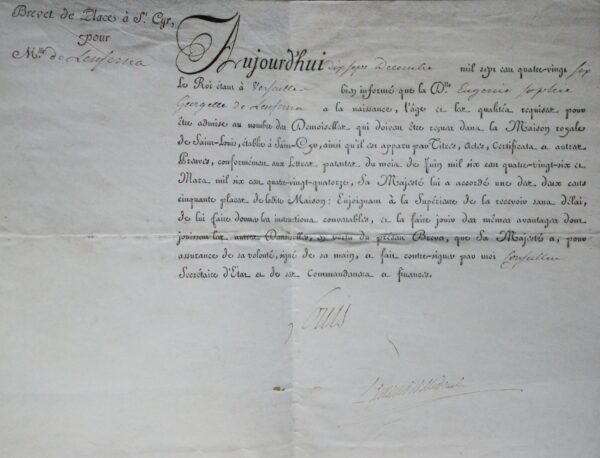 Brevet de Place à St. Cyr,
pour
Mlle. de Lenferna
Aujourd'hui dix sept Decembre mil sept cent quatre-vingt six
Le Roi étant à Versailles bien informé que la Dlle. Eugenie Sophie
Georgette de Lenferna a la naissance, l'âge et les qualités requises pour
être admise au nombre des Demoiselles qui doivent être reçues dans la Maison royale
de Saint-Louis, établie à Saint-Cyr, ainsi qu'il est apparu par Titres, Actes, Certificats et autres
Preuves, conformément aux Lettres patentes du mois de Juin mil six cent quatre-vingt-six et
Mars mil six cent quatre-vingt-quatorze, Sa Majesté lui a accordé une des deux cents
cinquante places de ladite Maison : Enjoignant à la Supérieure de la recevoir sans délai,
de lui faire donner les instructions convenables, et la faire jouir des mêmes avantages dont
jouissent les autres Demoiselles, en vertu du présent Brevet, que Sa Majesté a, pour
assurance de sa volonté, signé de sa main, et fait contre-signer par moi Conseiller
Secrétaire d'Etat et de ses Commandemens et finances.
Louis